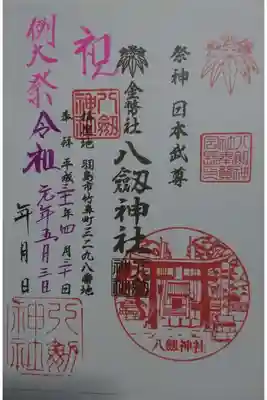 祭神 日本武尊
金幣社
八劔神社
祝
鎮座地 羽島市竹鼻町三二九八番地
奉拝 平成三十一年四月三十日
例大祭
令和元年五月三日
年月日
八劔神社
八劔神社
八劔神社